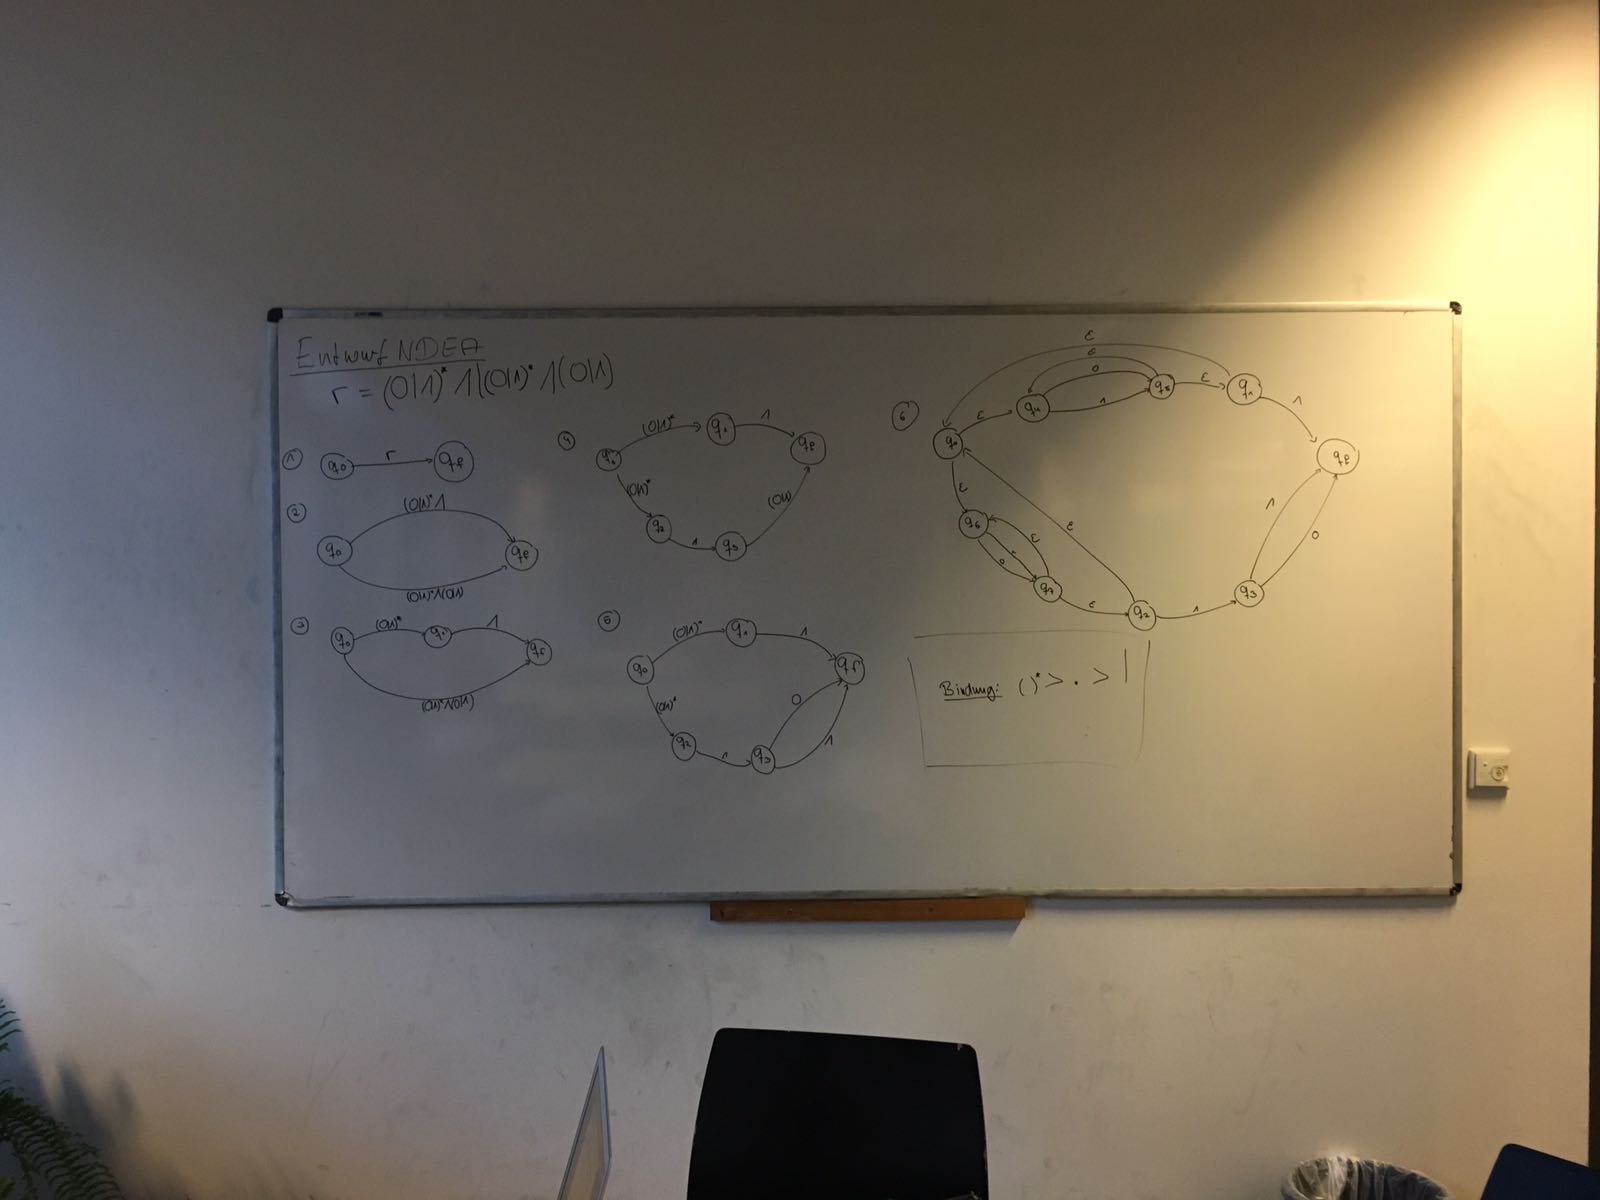 Entwurf NDEA
r = (0|1)* 1|(0|1)* 1(0|1)
1
q0 r qf
2
(0|1)*1
q0 qf
(0|1)*1(0|1)
3
(0|1)* 1
q0 q1 qf
(0|1)*1(0|1)
4
(0|1)* 1
q0 q1 qf
(0|1)* (0|1)
q2 1 q3
5
(0|1)* 1
q0 q1 qf
(0|1)* 0
q2 1 q3 1
6
ε
ε
0
q4 q5 ε q1
ε 1 1
q0 qf
ε
q6 ε ε 1
0 0
q7 ε q2 1 q3
Bindung: ()* > . > |